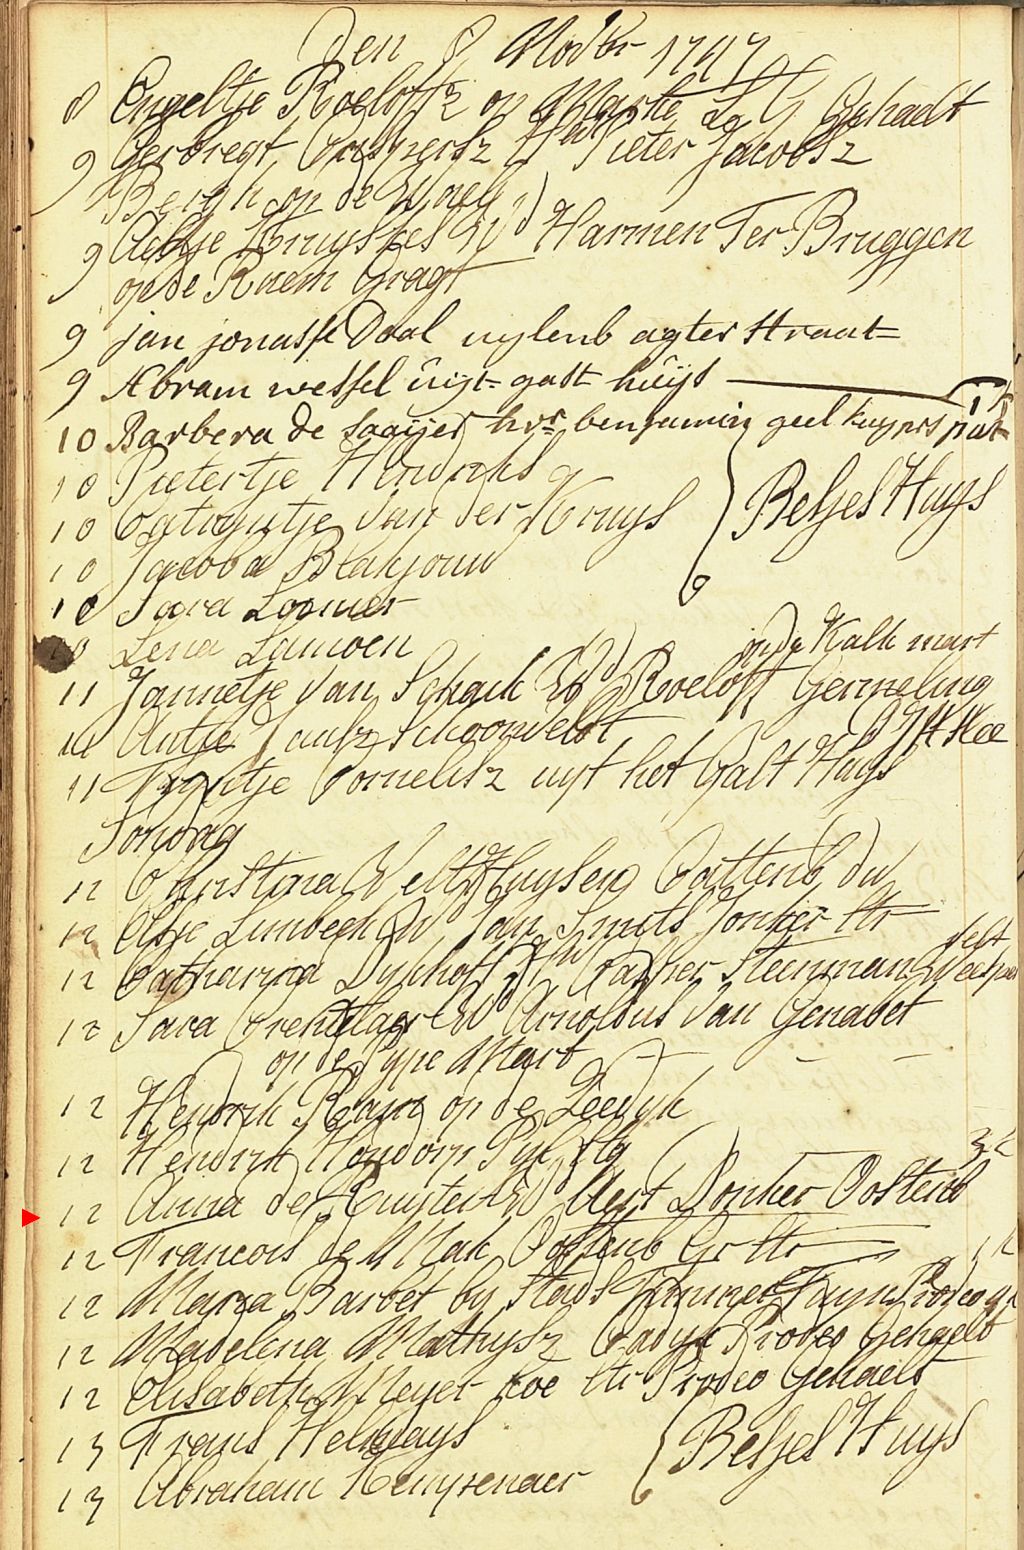 Den 8 Novbr 1747
8 Engeltje Roeloffz op Marke L G Gehaelt
9 Gerbregt Caspersz Wed Pieter Jacobsz
Bergh op de Wael
9 Aeltje Kruyskes Wd Harmen Ter Bruggen
op de Raem Gragt
9 jan jonasse Daal uylenb agter straat
9 Abram wessel uijt gast huijs 1 k
10 Barbera de saaijer hvr benjamin geel kuypers pat
10 Pietertje Hendriks
10 Catarijntje Van der Kruys Besjes Huys
10 Jacoba Blakjouw
10 Sara Loomer
10 Lena Lamoen op de Kalk mart
11 Jannetje Van Schaik Wd Roeloff Germeling
11 Antje Pauls Schoonvelst
11 Trijntje Cornelisz uyt het Gast Huys
Sondag
12 Christina Velthuysen Oostenb
12 Altje Limbeek Wd Jan Smits Jonker str
12 Catharina Dykhoff Casper Steenman Weesper
12 Sara Arnoldus Van Genabet
op de Pype Mart
12 Hendrik op de Zeedyk
12 Hendrik Hondorp Pyl stg 3 k
12 Anna de Ruyter Wd Aert Donker Oostenb
12 Francois de Mak Oostenb Gr str 1 k
12 Maria Barbet by Stads Timmer Tuyn Prodeo
12 Madelena Mathysz Prodeo Gehaelt
12 Elisabeth Meyer str Prodeo Gehaelt
13 Frans Helmays Besjes Huys
13 Abraham Kemzenaer